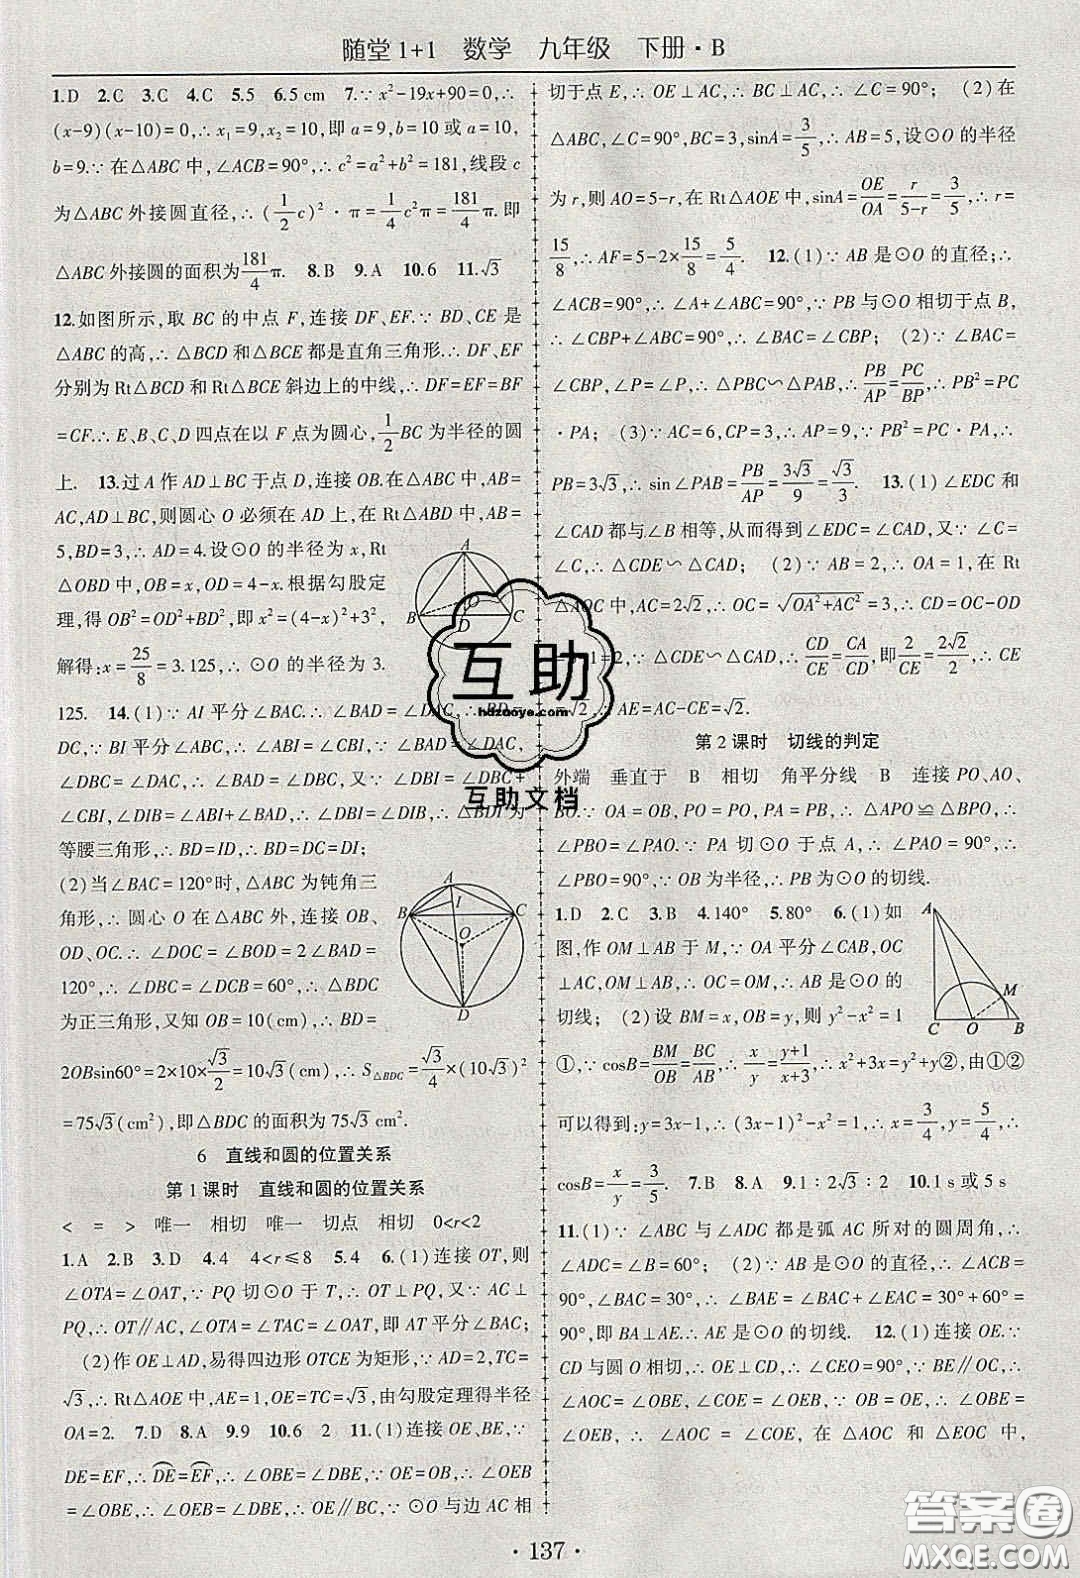 随堂1+1 数学 九年级 下册·B
1.D 2.C 3.C 4.C 5.5 6.5 cm 7.∵ x²-19x+90=0,∴
(x-9)(x-10)=0,∴ x₁=9,x₂=10,即 a=9,b=10 或 a=10,
b=9.∵ 在△ABC 中,∠ACB=90°,∴ c²=a²+b²=181,线段 c
为△ABC 外接圆直径,∴ (1/2 c)²·π=1/4 c²π=181/4 π.即
△ABC 外接圆的面积为181/4 π. 8.B 9.A 10.6 11.√3
12.如图所示,取 BC 的中点 F,连接 DF、EF.∵ BD、CE 是
△ABC 的高,∴ △BCD 和△BCE 都是直角三角形.∴ DF、EF
分别为 Rt△BCD 和 Rt△BCE 斜边上的中线,∴ DF=EF=BF
=CF.∴ E、B、C、D 四点在以 F 点为圆心,1/2 BC 为半径的圆
上. 13.过 A 作 AD⊥BC 于点 D,连接 OB.在△ABC 中,AB=
AC,AD⊥BC,则圆心 O 必须在 AD 上,在 Rt△ABD 中,AB=
5,BD=3,∴ AD=4.设⊙O 的半径为 x,Rt
△OBD 中,OB=x,OD=4-x.根据勾股定
理,得 OB²=OD²+BD²,即 x²=(4-x)²+3²,
解得:x=25/8=3.125,∴ ⊙O 的半径为 3.
125. 14.(1)∵ AI 平分∠BAC.∴ ∠BAD=∠DAC,∴ BD=
DC,∵ BI 平分∠ABC,∴ ∠ABI=∠CBI,∵ ∠BAD=∠DAC,
∠DBC=∠DAC,∴ ∠BAD=∠DBC,又∵ ∠DBI=∠DBC+
∠CBI,∠DIB=∠ABI+∠BAD,∴ ∠DBI=∠DIB,∴ △BDI 为
等腰三角形,∴ BD=ID,∴ BD=DC=DI;
(2)当∠BAC=120°时,△ABC 为钝角三
角形,∴ 圆心 O 在△ABC 外,连接 OB、
OD、OC.∴ ∠DOC=∠BOD=2∠BAD=
120°,∴ ∠DBC=∠DCB=60°,∴ △BDC
为正三角形,又知 OB=10(cm),∴ BD=
2OBsin60°=2×10×√3/2=10√3(cm),∴ S△BDC=√3/4×(10√3)²
=75√3(cm²),即△BDC 的面积为 75√3 cm².
6 直线和圆的位置关系
第 1 课时 直线和圆的位置关系
< = > 唯一 相切 唯一 切点 相切 0<r<2
1.A 2.B 3.D 4.4 4<r≤8 5.4 6.(1)连接 OT,则
∠OTA=∠OAT,∵ PQ 切⊙O 于 T,∴ OT⊥PQ,又∵ AC⊥
PQ,∴ OT∥AC,∴ ∠TAC=∠OAT,即 AT 平分∠BAC;
(2)作 OE⊥AD,易得四边形 OTCE 为矩形,∵ AD=2,TC=
√3,∴ Rt△AOE 中,AE=1,OE=TC=√3,由勾股定理得半径
OA=2. 7.D 8.A 9.9 10.6 2 11.(1)连接 OE、BE,∵
DE=EF,∴ DE=EF,∴ ∠OBE=∠DBE,∵ OE=OB,∴ ∠OEB
=∠OBE,∴ ∠OEB=∠DBE,∴ OE∥BC,∵ ⊙O 与边 AC 相
切于点 E,∴ OE⊥AC,∴ BC⊥AC,∴ ∠C=90°; (2)在
△ABC,∠C=90°,BC=3,sinA=3/5,∴ AB=5,设⊙O 的半径
为 r,则 AO=5-r,在 Rt△AOE 中,sinA=OE/OA=r/(5-r)=3/5,∴ r=
15/8,∴ AF=5-2×15/8=5/4. 12.(1)∵ AB 是⊙O 的直径;∴
∠ACB=90°,∴ ∠A+∠ABC=90°,∵ PB 与⊙O 相切于点 B,
∴ ∠CBP+∠ABC=90°,∴ ∠BAC=∠CBP; (2)∵ ∠BAC=
∠CBP,∠P=∠P,∴ △PBC∽△PAB,∴ PB/AP=PC/BP,∴ PB²=PC
·PA; (3)∵ AC=6,CP=3,∴ AP=9,∵ PB²=PC·PA,∴
PB=3√3,∴ sin∠PAB=PB/AP=3√3/9=√3/3. 13.(1)∠EDC 和
∠CAD 都与∠B 相等,从而得到∠EDC=∠CAD,又∵ ∠C=
∠C,∴ △CDE∽△CAD; (2)∵ AB=2,∴ OA=1,在 Rt
△AOC 中,AC=2√2,∴ OC=√(OA²+AC²)=3,∴ CD=OC-OD
1=2,∵ △CDE∽△CAD,∴ CD/CE=CA/CD,即2/CE=2√2/2,∴ CE
√2,∴ AE=AC-CE=√2.
第 2 课时 切线的判定
外端 垂直于 B 相切 角平分线 B 连接 PO、AO、
BO.∵ OA=OB,PO=PO,PA=PB,∴ △APO≌△BPO,∴
∠PBO=∠PAO.∵ PA 切⊙O 于点 A,∴ ∠PAO=90°,∴
∠PBO=90°,∵ OB 为半径,∴ PB 为⊙O 的切线.
1.D 2.C 3.B 4.140° 5.80° 6.(1)如
图,作 OM⊥AB 于 M,∵ OA 平分∠CAB,OC
⊥AC,OM⊥AB,∴ OC=OM,∴ AB 是⊙O 的
切线; (2)设 BM=x,OB=y,则 y²-x²=1
①,∵ cosB=BM/OB=BC/AB,∴ x/y=(y+1)/(x+3),∴ x²+3x=y²+y②,由①②
可以得到:y=3x-1,∴ (3x-1)²-x²=1,∴ x=3/4,y=5/4,∴
cosB=x/y=3/5. 7.B 8.A 9.1∶2√3∶2 10.1 s 或 5 s
11.(1)∵ ∠ABC 与∠ADC 都是弧 AC 所对的圆周角,∴
∠ADC=∠B=60°; (2)∵ AB 是⊙O 的直径,∴ ∠ACB=
90°,∠BAC=30°,∴ ∠BAE=∠BAC+∠EAC=30°+60°=
90°,即 BA⊥AE.∴ AE 是⊙O 的切线. 12.(1)连接 OE.∵
CD 与圆 O 相切,∴ OE⊥CD,∴ ∠CEO=90°,∵ BE∥OC,∴
∠AOC=∠OBE,∠COE=∠OEB,∵ OB=OE,∴ ∠OBE=
∠OEB,∴ ∠AOC=∠COE,在△AOC 和△EOC 中,
A
B
O
D
C
A
I
B
C
O
D
A
M
C
O
B
互助
hdzuoye.com
互助文档
·137·
答案圈
MXQE.COM